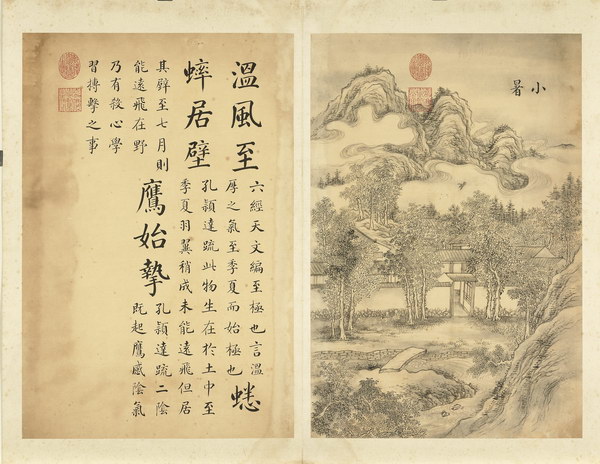 小
暑
溫風至
六經天文編至極也言溫
厚之氣至季夏而始極也
蟋
蟀居壁
孔穎達疏此物生在於土中至
季夏羽翼稍成未能遠飛但居
其壁至七月則
能遠飛在野
鷹始摯
孔穎達疏二陰
既起鷹感陰氣
乃有殺心學
習搏擊之事